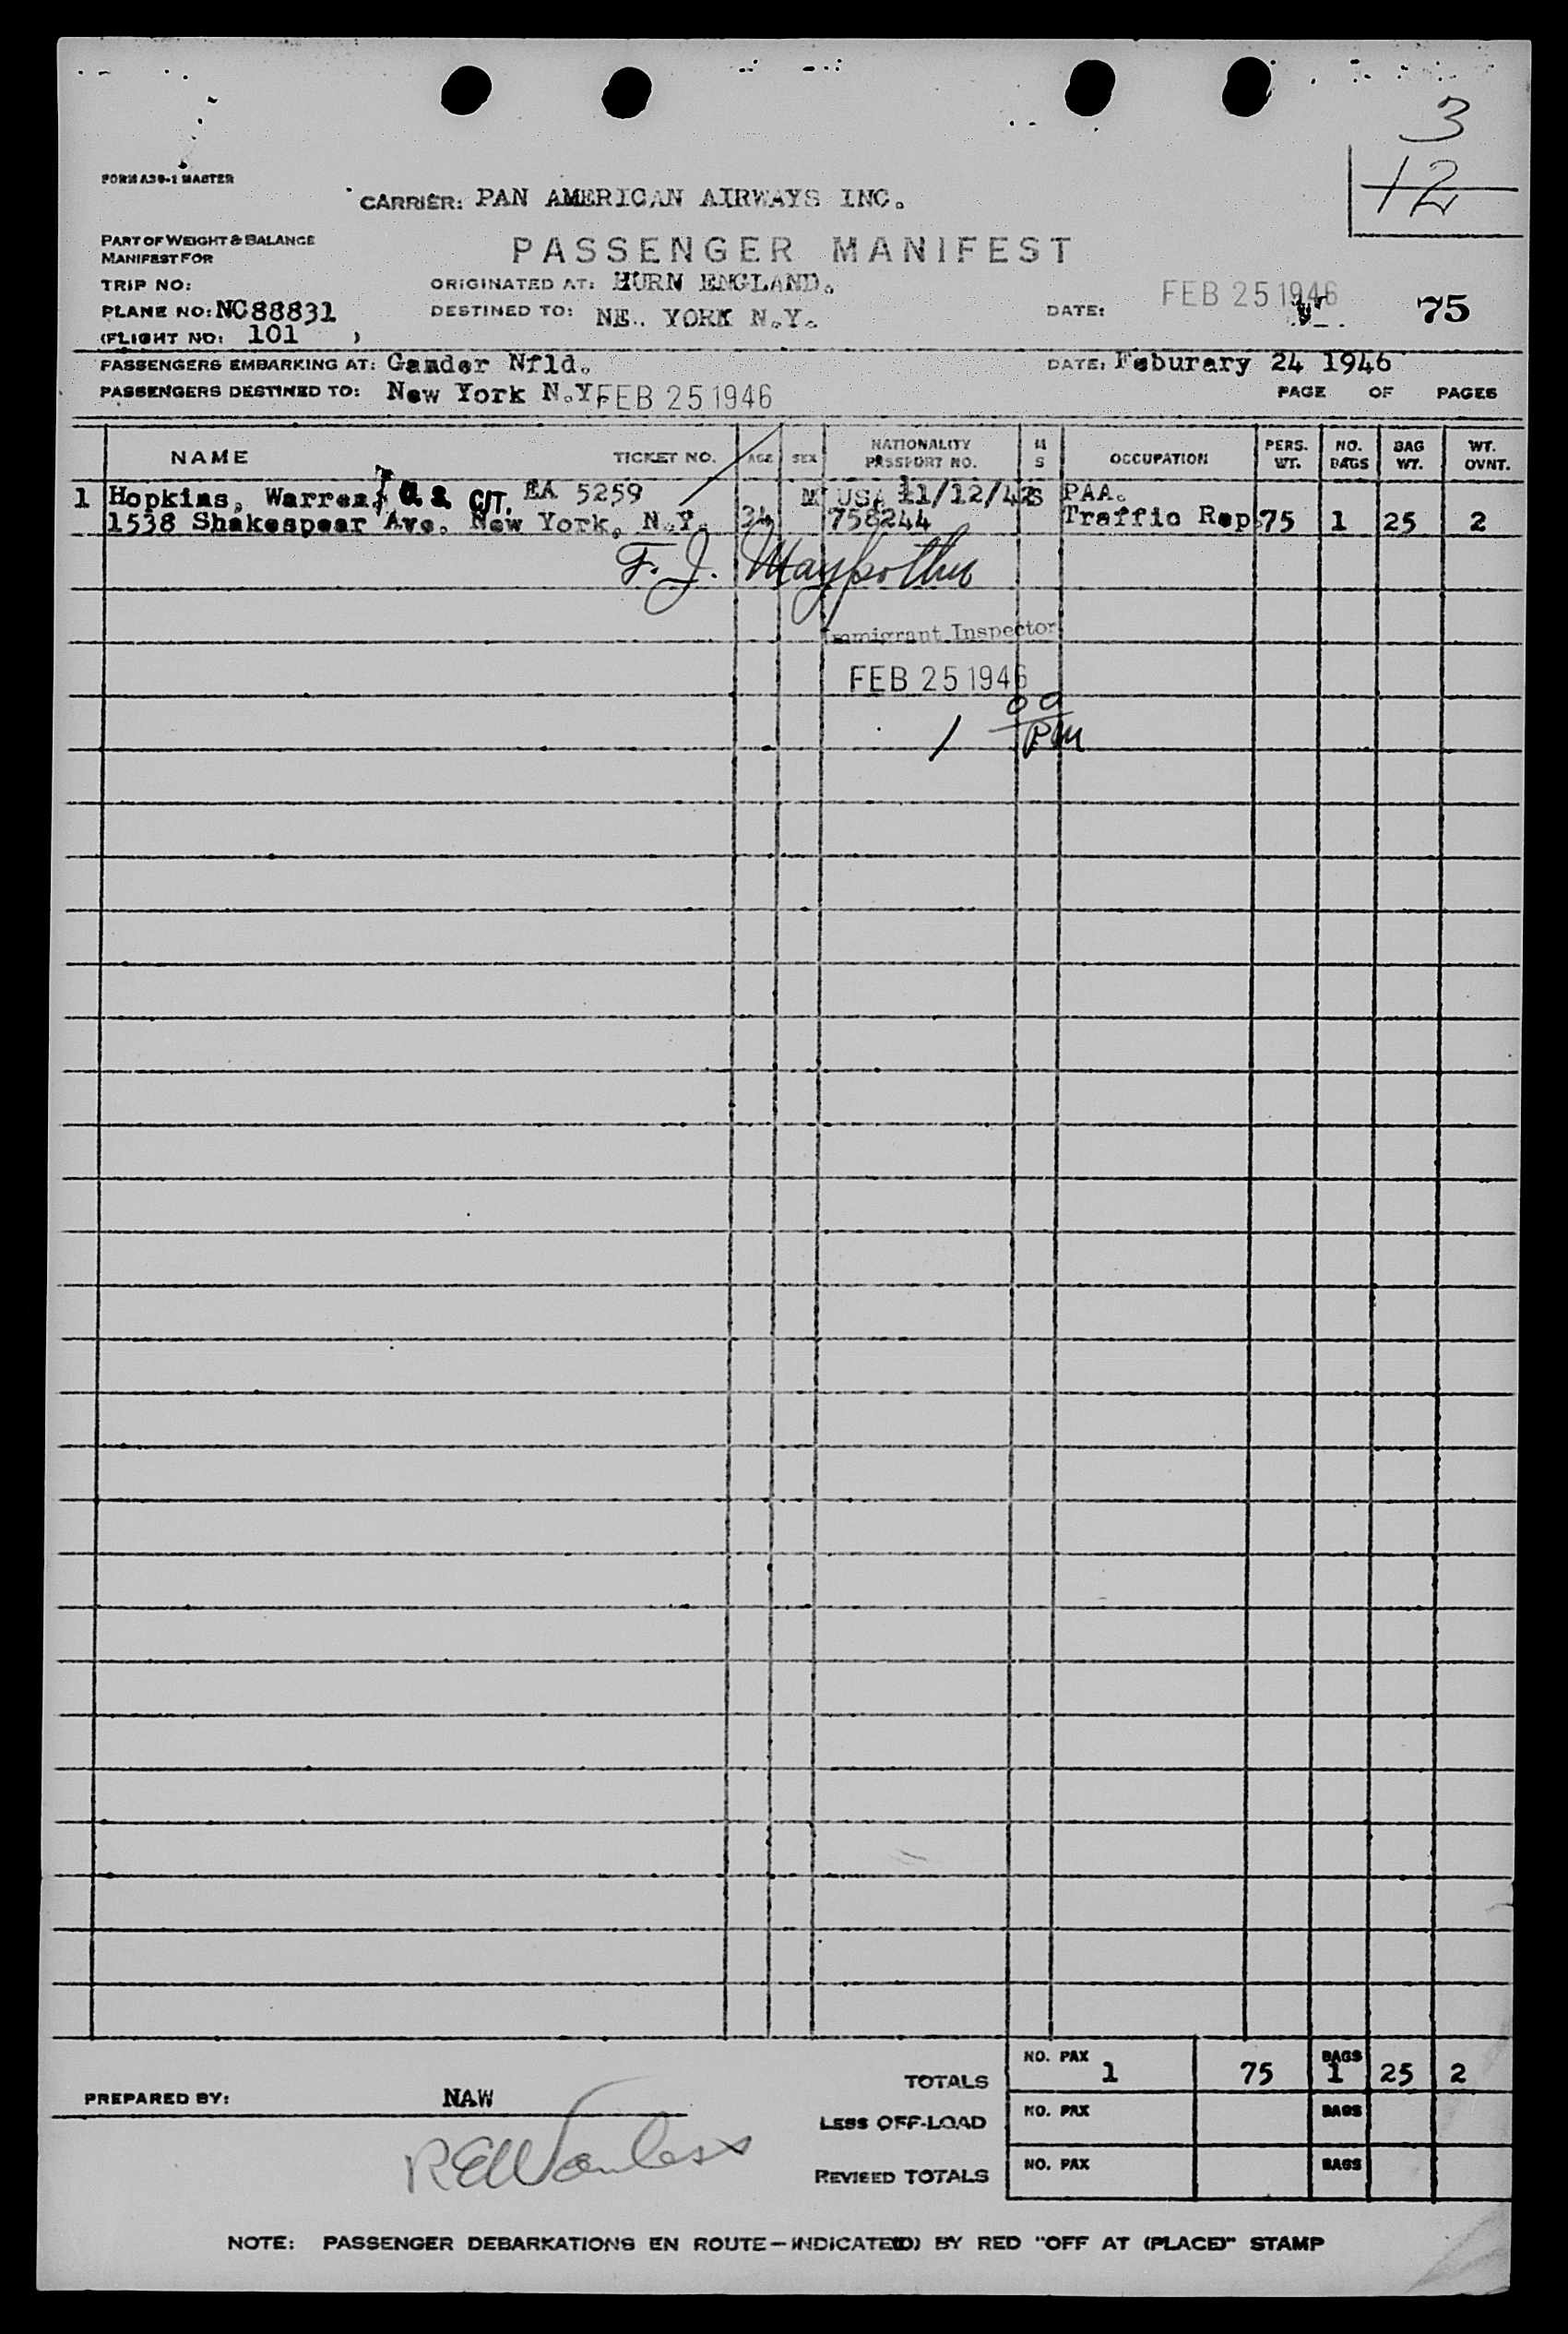 3
12
FORM A30-1 MASTER
CARRIER: PAN AMERICAN AIRWAYS INC.
PART OF WEIGHT & BALANCE
MANIFEST FOR
PASSENGER MANIFEST
TRIP NO:
ORIGINATED AT: HURN ENGLAND.
FEB 25 1946
PLANE NO: NC88831
DESTINED TO: NE. YORK N.Y.
DATE:
75
(FLIGHT NO: 101 )
PASSENGERS EMBARKING AT: Gander Nfld.
DATE: Feburary 24 1946
PASSENGERS DESTINED TO: New York N.Y. FEB 25 1946
PAGE OF PAGES
NAME TICKET NO. AGE SEX NATIONALITY PASSPORT NO. M S OCCUPATION PERS. WT. NO. BAGS BAG WT. WT. OVNT.
1 Hopkins, Warren U S CIT. EA 5259 M USA 11/12/42 S PAA.
1538 Shakespear Ave. New York, N.Y. 34 758244 Traffic Rep 75 1 25 2
F. J.
Immigrant Inspector
FEB 25 1946
1 00 PM
TOTALS NO. PAX 1 75 BAGS 1 25 2
PREPARED BY: NAW
LESS OFF-LOAD NO. PAX BAGS
REVISED TOTALS NO. PAX BAGS
REWanless
NOTE: PASSENGER DEBARKATIONS EN ROUTE—INDICATE(D) BY RED "OFF AT (PLACE)" STAMP